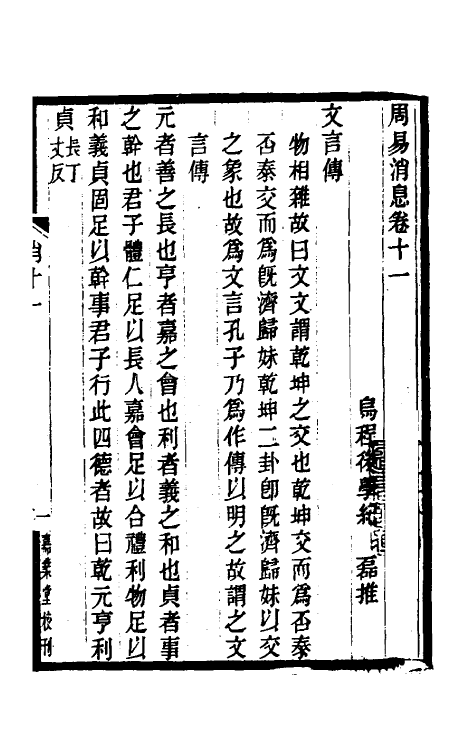 周易消息卷十一
烏程後學紀 磊推
文言傳
物相雜故曰文文謂乾坤之交也乾坤交而爲否泰
否泰交而爲旣濟歸妹乾坤二卦卽旣濟歸妹以交
之象也故爲文言孔子乃爲作傳以明之故謂之文
言傳
元者善之長也亨者嘉之會也利者義之和也貞者事
之幹也君子體仁足以長人嘉會足以合禮利物足以
和義貞固足以幹事君子行此四德者故曰乾元亨利
貞長丁丈反
消十一
一
嘉業堂校刊